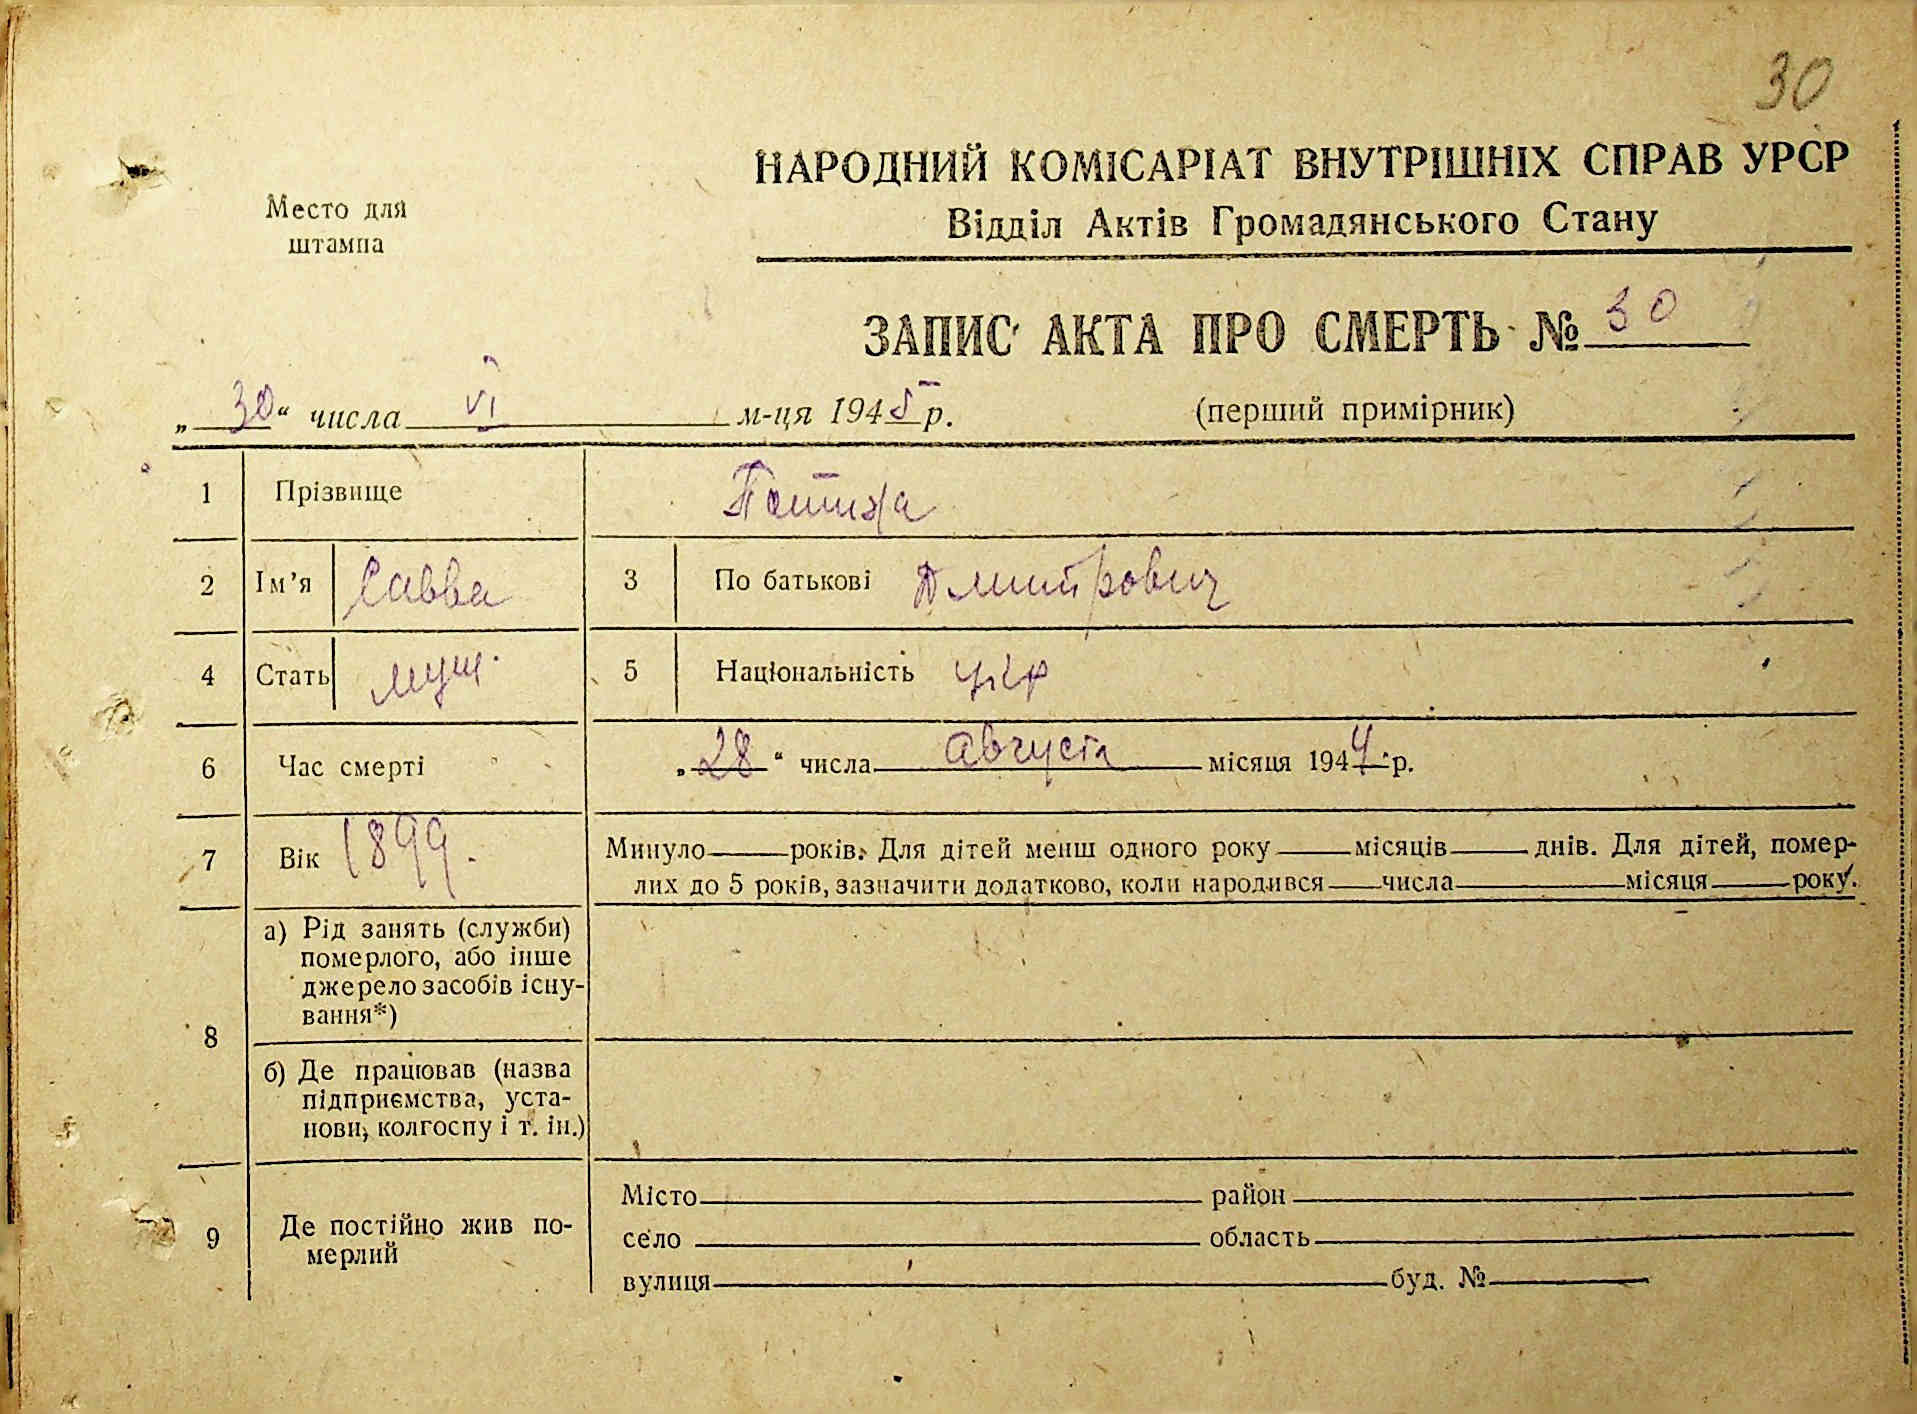 30
Место для
штампа
НАРОДНИЙ КОМІСАРІАТ ВНУТРІШНІХ СПРАВ УРСР
Відділ Актів Громадянського Стану
ЗАПИС АКТА ПРО СМЕРТЬ № 30
„30“ числа VI м-ця 1945 р.
(перший примірник)
1 Прізвище
2 Ім’я Савва 3 По батькові Дмитрович
4 Стать мущ. 5 Національність укр
6 Час смерті „28“ числа Августа місяця 1944 р.
7 Вік 1899. Минуло років. Для дітей менш одного року місяців днів. Для дітей, помер-
лих до 5 років, зазначити додатково, коли народився числа місяця року.
8 а) Рід занять (служби)
померлого, або інше
джерело засобів існу-
вання*)
б) Де працював (назва
підприємства, уста-
нови, колгоспу і т. ін.)
9 Де постійно жив по-
мерлий
Місто район
село область
вулиця буд. №